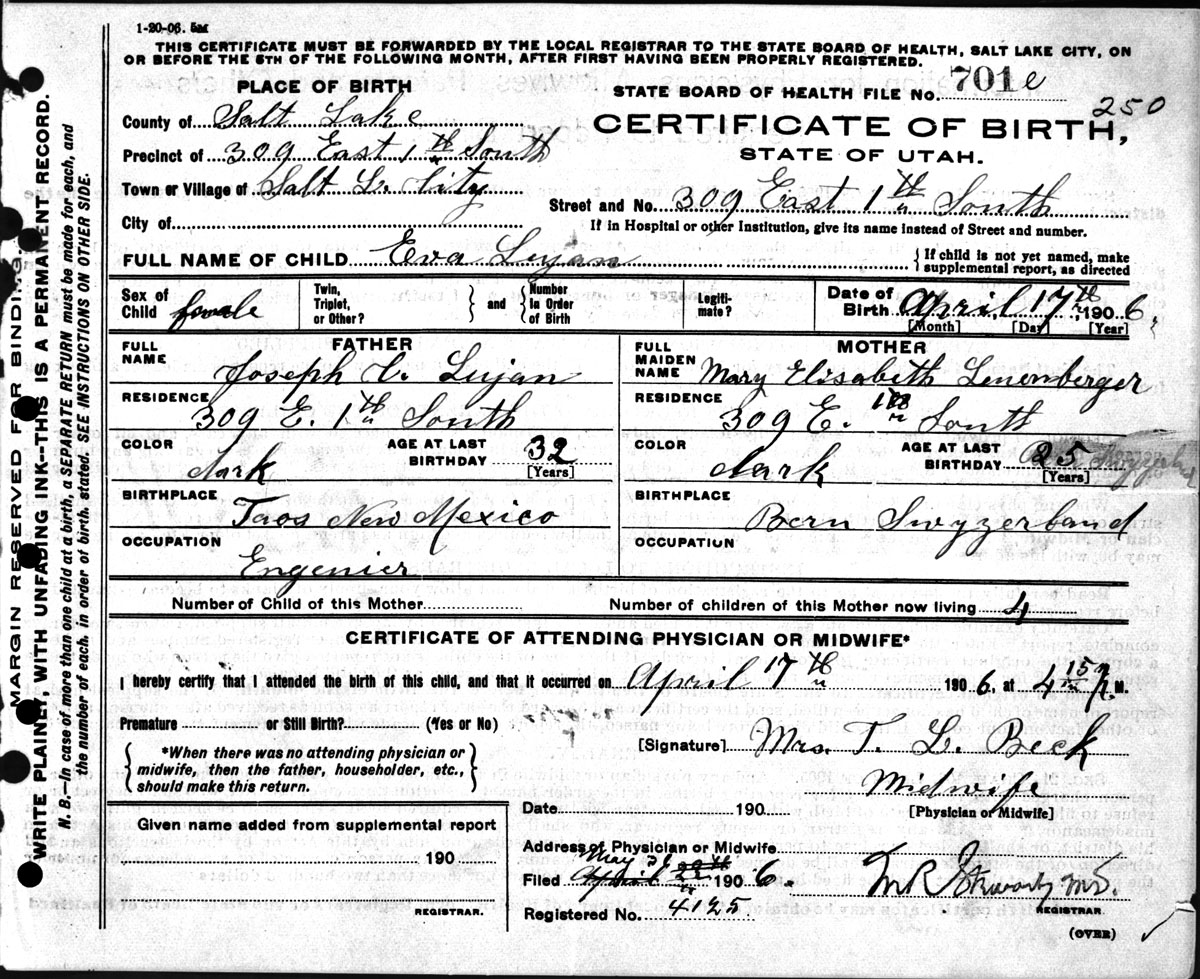 1-20-06. 5M
THIS CERTIFICATE MUST BE FORWARDED BY THE LOCAL REGISTRAR TO THE STATE BOARD OF HEALTH, SALT LAKE CITY, ON
OR BEFORE THE 5TH OF THE FOLLOWING MONTH, AFTER FIRST HAVING BEEN PROPERLY REGISTERED.
PLACE OF BIRTH
STATE BOARD OF HEALTH FILE No. 701 e
250
County of Salt Lake
CERTIFICATE OF BIRTH,
Precinct of 309 East 1th South
STATE OF UTAH.
Town or Village of Salt L. City
Street and No. 309 East 1th South
City of
If in Hospital or other Institution, give its name instead of Street and number.
FULL NAME OF CHILD Eva Lujan
If child is not yet named, make
supplemental report, as directed
Sex of
Child female
Twin,
Triplet,
or Other?
and
Number
in Order
of Birth
Legiti-
mate?
Date of
Birth April 17th, 1906.
[Month] [Day] [Year]
FATHER
FULL
NAME
Joseph C. Lujan
RESIDENCE
309 E. 1th South
COLOR
dark
AGE AT LAST
BIRTHDAY 32
[Years]
BIRTHPLACE
Taos New Mexico
OCCUPATION
Engenier
MOTHER
FULL
MAIDEN
NAME Mary Elisabeth Leuenberger
RESIDENCE
309 E. 1th South
COLOR
dark
AGE AT LAST
BIRTHDAY 25
[Years]
BIRTHPLACE
Bern Swyzerband
OCCUPATION
Number of Child of this Mother
Number of children of this Mother now living 4
CERTIFICATE OF ATTENDING PHYSICIAN OR MIDWIFE*
I hereby certify that I attended the birth of this child, and that it occurred on April 17th 1906. at 4 15 P. M.
Premature or Still Birth? (Yes or No)
[Signature] Mrs. T. L. Beck
*When there was no attending physician or
midwife, then the father, householder, etc.,
should make this return.
Midwife
[Physician or Midwife]
Date 190
Given name added from supplemental report
190
REGISTRAR.
Address of Physician or Midwife
May
Filed April 1906.
M R Stewart M.D.
REGISTRAR.
Registered No. 4125
(OVER)
MARGIN RESERVED FOR BINDING.
WRITE PLAINLY WITH UNFADING INK--THIS IS A PERMANENT RECORD.
N. B.—In case of more than one child at a birth, a SEPARATE RETURN must be made for each, and
the number of each, in order of birth, stated. SEE INSTRUCTIONS ON OTHER SIDE.